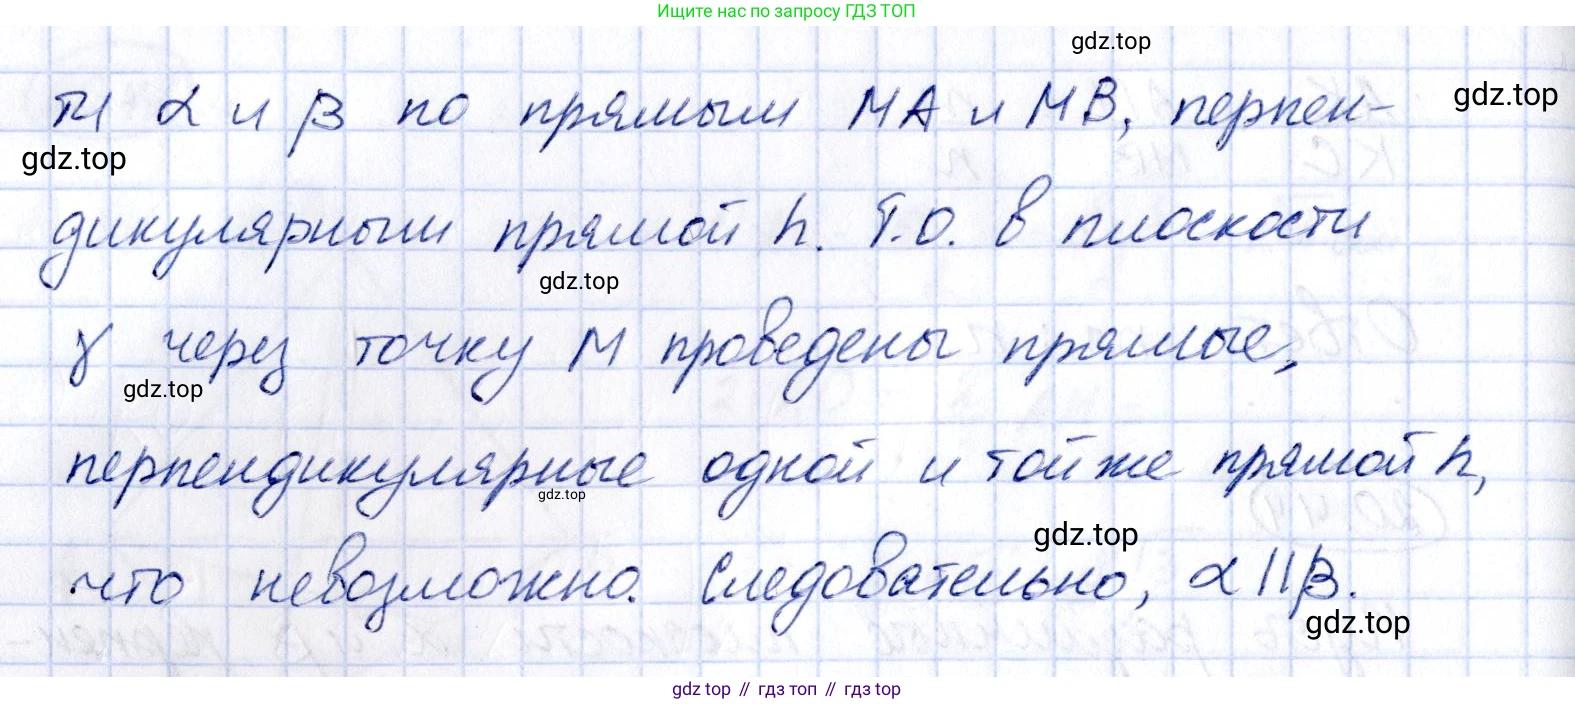 Ищите нас по запросу ГДЗ ТОП
gdz.top
ти α и β по прямым MA и MB, перпен-
gdz.top
gdz.top
дикулярным прямой h. Т.о. в плоскости
gdz.top
γ через точку M проведены прямые,
gdz.top
перпендикулярные одной и той же прямой h,
gdz.top
gdz.top
что невозможно. Следовательно, α || β.
gdz.top
gdz top // гдз топ // гдз top